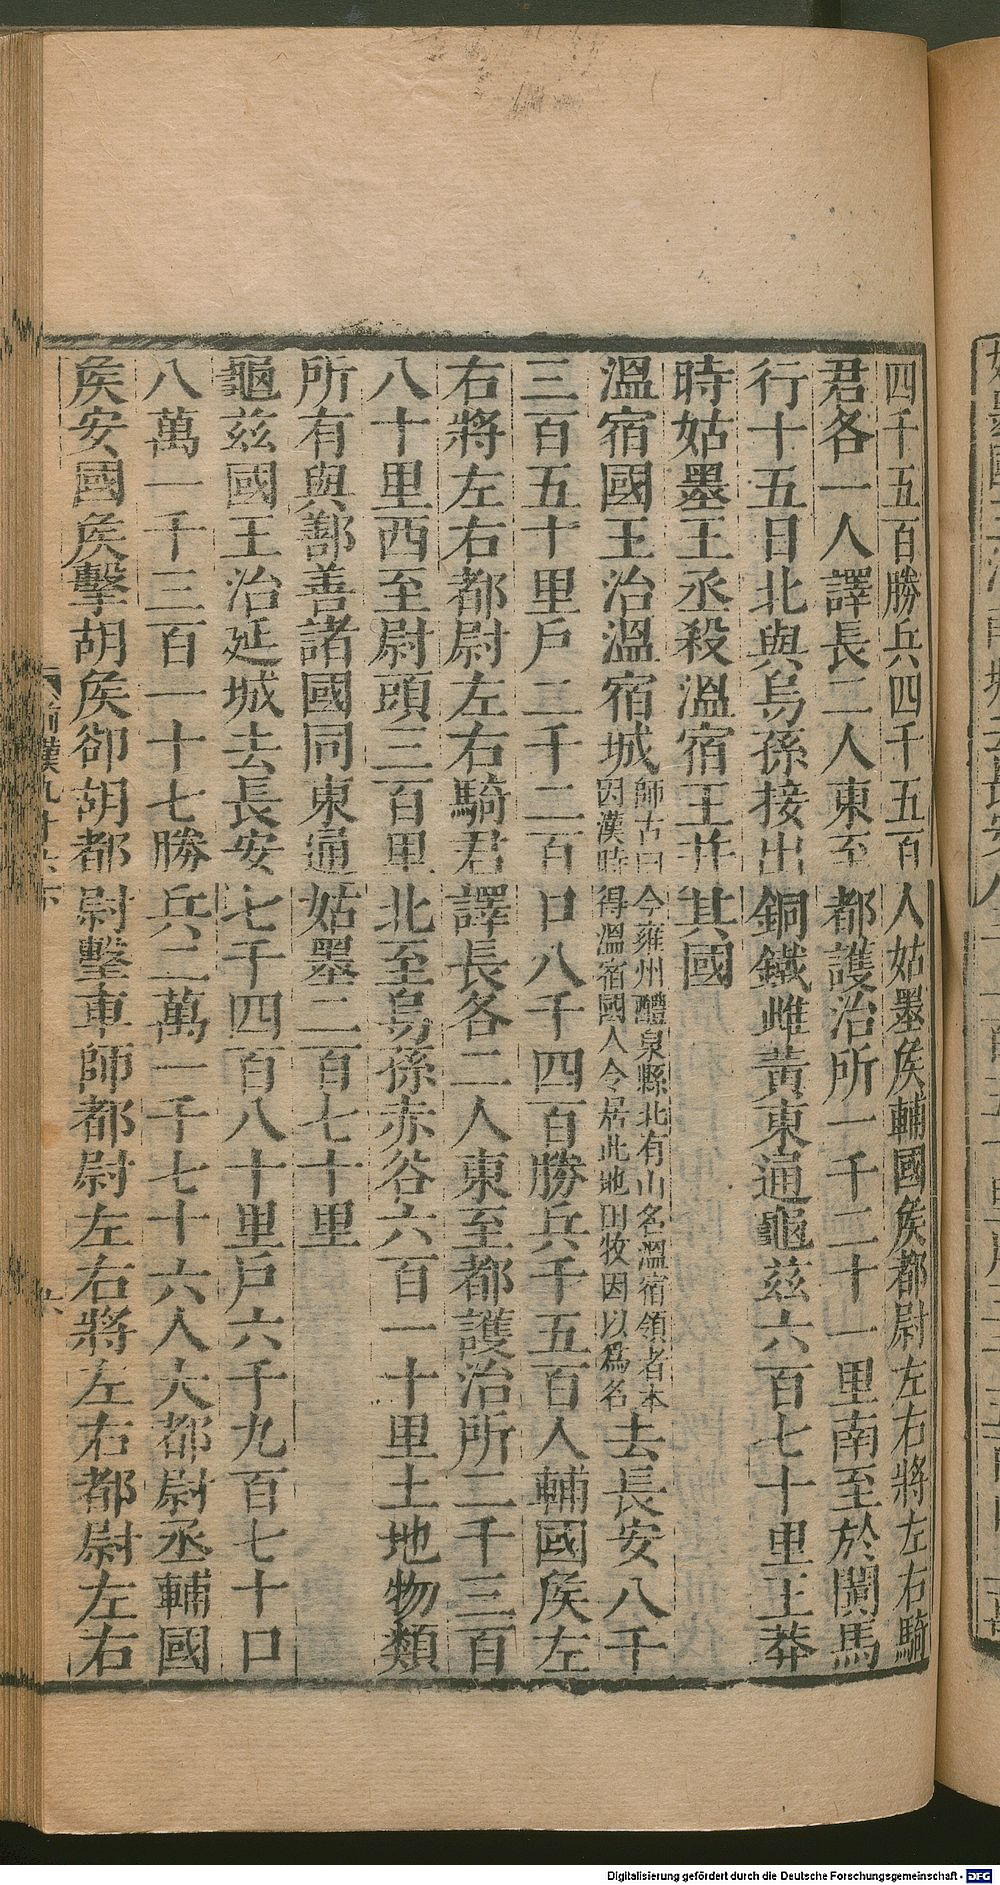 四千五百勝兵四千五百人姑墨矦輔國矦都尉左右將左右騎
君各一人譯長二人東至都護治所一千二十一里南至於闐馬
行十五日北與烏孫接出銅鐵雌黃東通龜茲六百七十里王莽
時姑墨王丞殺溫宿王并其國
溫宿國王治溫宿城師古曰今雍州醴泉縣北有山名溫宿領者本因漢時得溫宿國人令居此地田牧因以爲名去長安八千
三百五十里戶二千二百口八千四百勝兵千五百人輔國矦左
右將左右都尉左右騎君譯長各二人東至都護治所二千三百
八十里西至尉頭三百里北至烏孫赤谷六百一十里土地物類
所有與鄯善諸國同東通姑墨二百七十里
龜茲國王治延城去長安七千四百八十里戶六千九百七十口
八萬一千三百一十七勝兵二萬一千七十六人大都尉丞輔國
矦安國矦擊胡矦卻胡都尉擊車師都尉左右將左右都尉左右
Digitalisierung gefördert durch die Deutsche Forschungsgemeinschaft - DFG